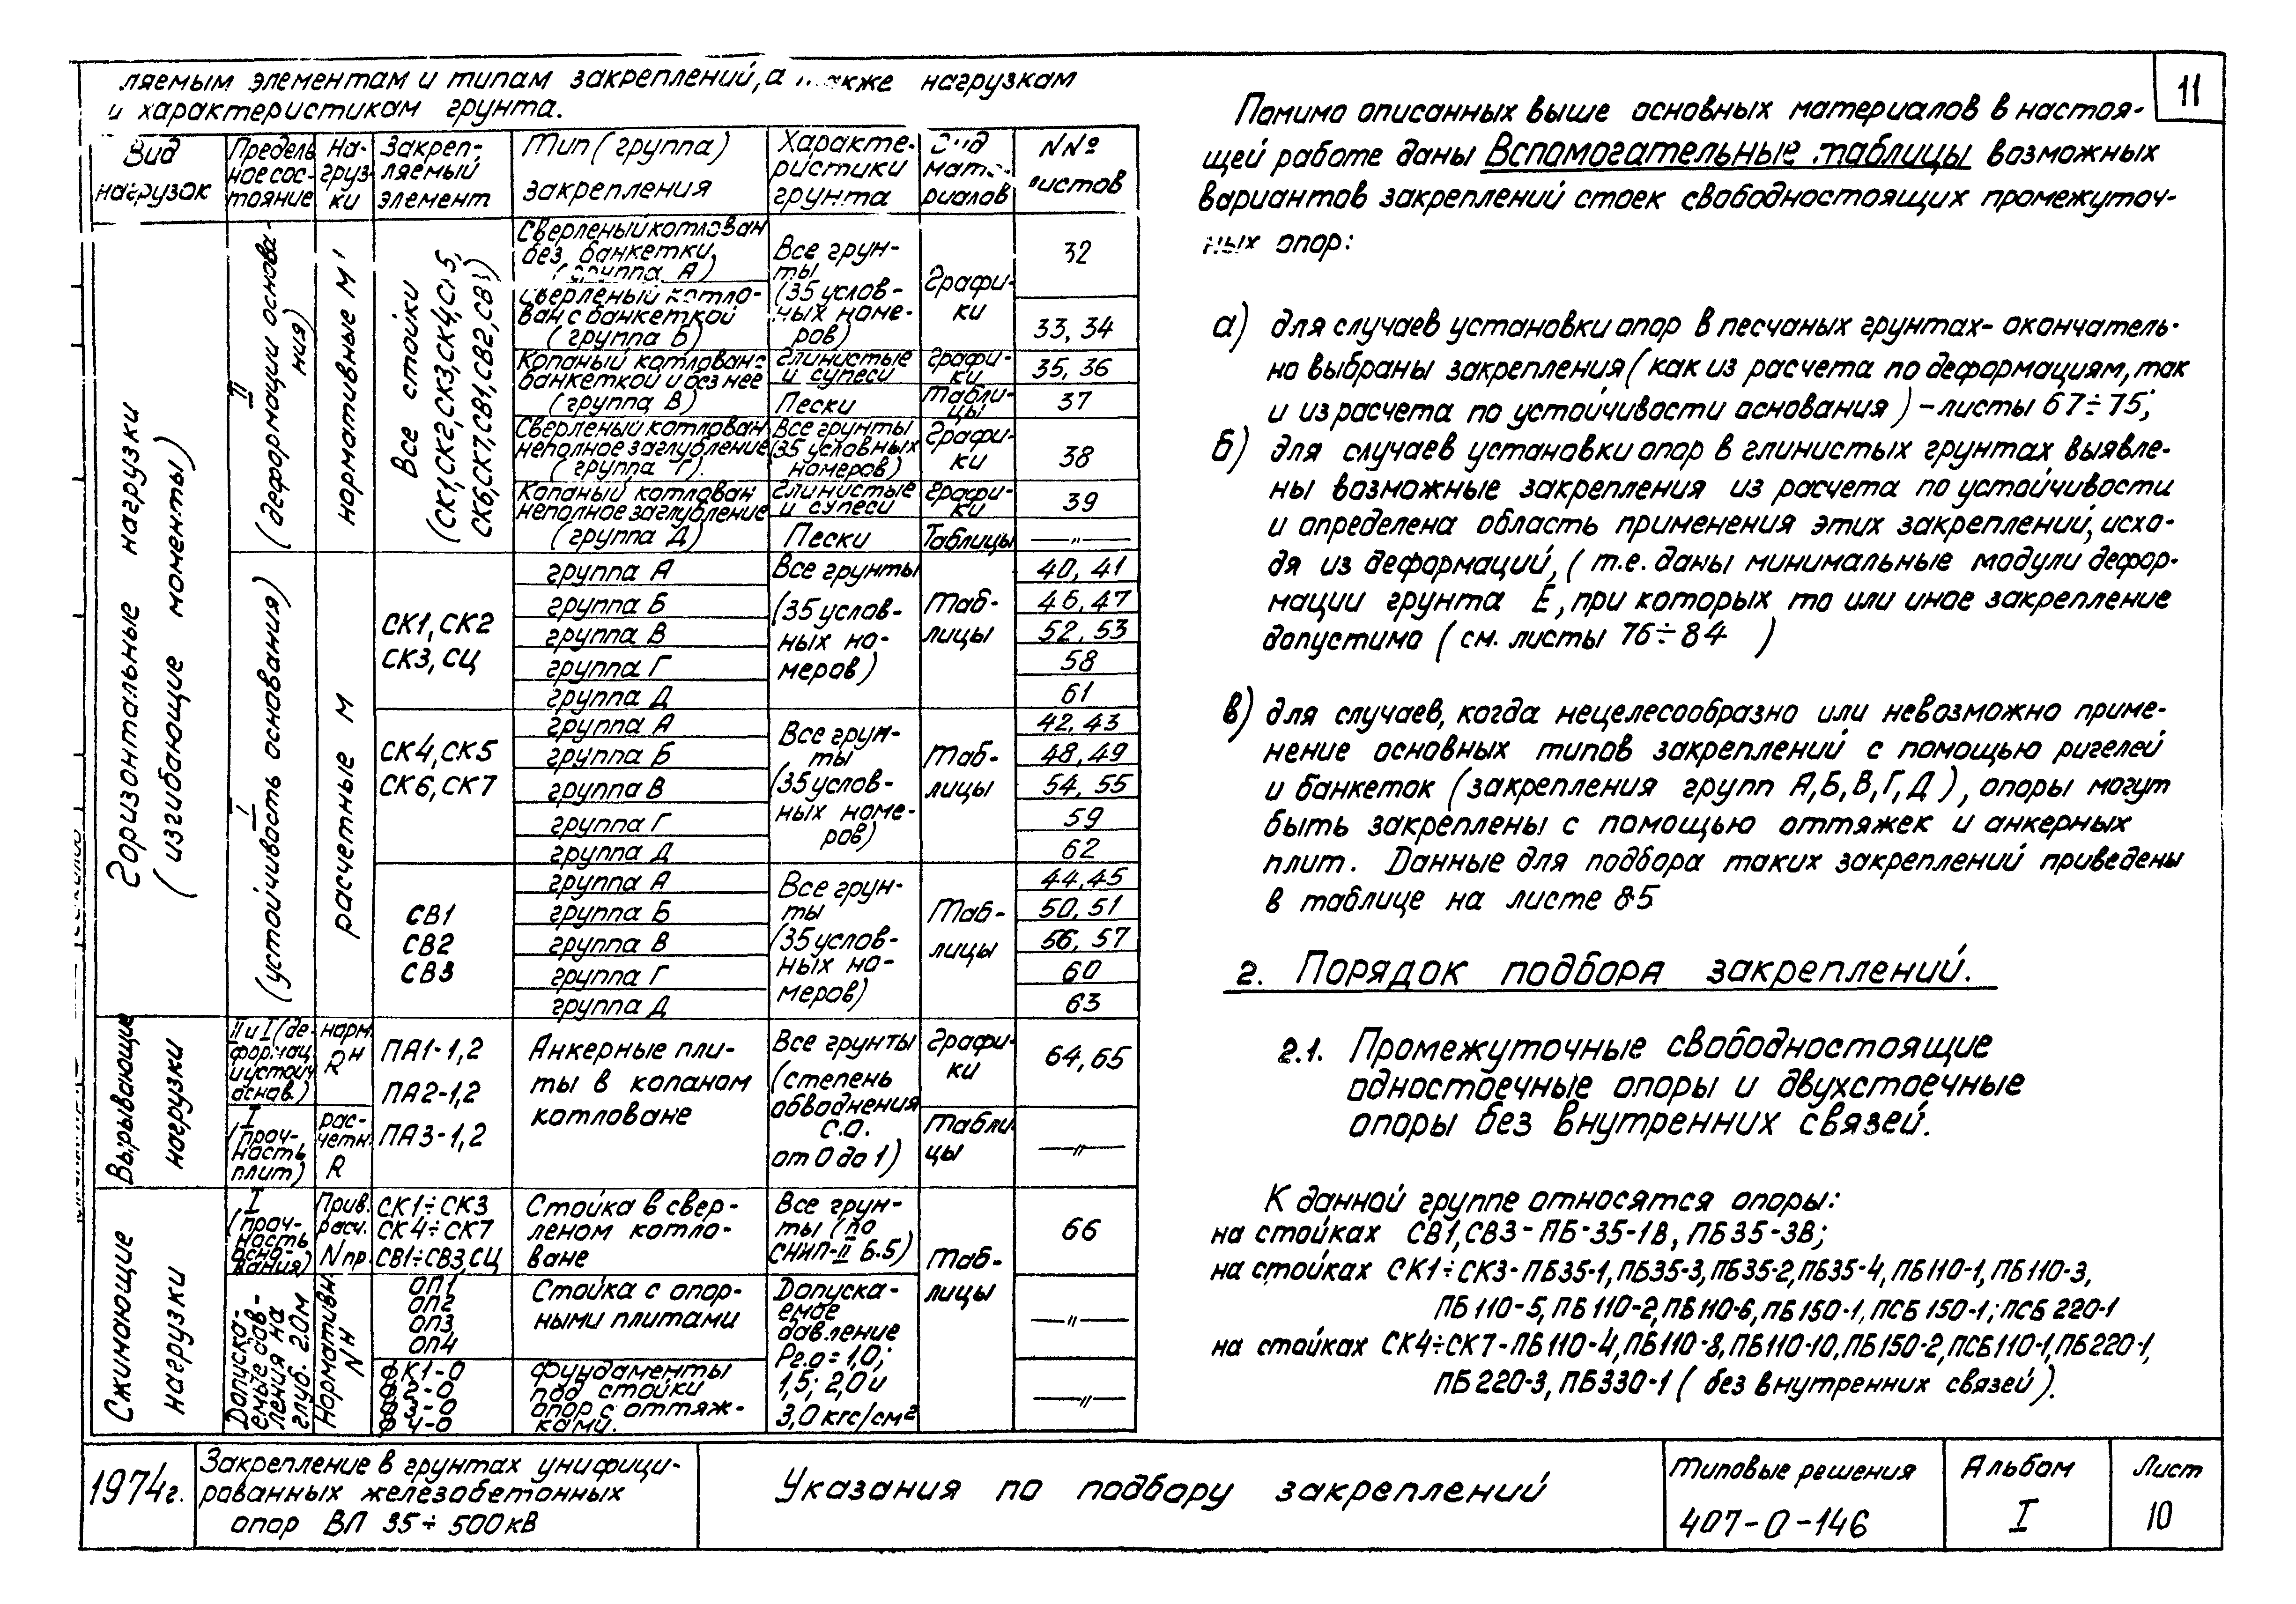 ляемым элементам и типам закреплений, а также нагрузкам
и характеристикам грунта.
Вид нагрузок
Предель-
ное сос-
тояние
На-
груз-
ки
Закреп-
ляемый
элемент
Тип (группа)
закрепления
Характе-
ристики
грунта
риалов
NNº
листов
Горизонтальные нагрузки
(изгибающие моменты)
II
(деформации основа-
ния)
нормативные М'
Все стойки
(СК1, СК2, СК3, СК4, СК5,
СК6, СК7, СВ1, СВ2, СВ3)
Сверленый котлован
без банкетки
(группа А)
Все грун-
ты
(35 услов-
ных номе-
ров)
Графи-
ки
32
Сверленый котло-
ван с банкеткой
(группа Б)
33, 34
Копаный котлован с
банкеткой и без нее
(группа В)
Глинистые
и супеси
Графи-
ки
35, 36
Пески
Табли-
цы
37
Сверленый котлован
неполное заглубление
(группа Г).
Все грунты
(35 условных
номеров)
Графи-
ки
38
Копаный котлован
неполное заглубление
(группа Д)
Глинистые
и супеси
Графи-
ки
39
Пески
Таблицы
—"—
I
(устойчивость основания)
расчетные М
СК1, СК2
СК3, СЦ
группа А
группа Б
группа В
группа Г
группа Д
Все грунты
(35 услов-
ных но-
меров)
Таб-
лицы
40, 41
46, 47
52, 53
58
61
СК4, СК5
СК6, СК7
группа А
группа Б
группа В
группа Г
группа Д
Все грун-
ты
(35 услов-
ных номе-
ров)
Таб-
лицы
42, 43
48, 49
54, 55
59
62
СВ1
СВ2
СВ3
группа А
группа Б
группа В
группа Г
группа Д
Все грун-
ты
(35 услов-
ных но-
меров)
Таб-
лицы
44, 45
50, 51
56, 57
60
63
Вырывающие
нагрузки
II и I (де-
формац.
и устойч.
основ.)
норм.
Rн
ПА1-1,2
ПА2-1,2
ПА3-1,2
Анкерные пли-
ты в копаном
котловане
Все грунты
(степень
обводнения
С.О.
от 0 до 1)
Графи-
ки
64, 65
I
(проч-
ность
плит)
рас-
четн.
R
Табли-
цы
—"—
Сжимающие
нагрузки
I
(проч-
ность
осно-
вания)
Прив.
расч.
Nпр.
СК1÷СК3
СК4÷СК7
СВ1÷СВ3, СЦ
Стойка в свер-
леном котло-
ване
Все грун-
ты (по
СНИП-II Б.5)
Таб-
лицы
66
Допуска-
емые дав-
ления на
глуб. 2.0м
Нормативн.
Nн
ОП1
ОП2
ОП3
ОП4
Стойка с опор-
ными плитами
Допуска-
емое
давление
Рг.о = 1,0;
1,5; 2,0 и
3,0 кгс/см²
—"—
ФК1-0
Ф2-0
Ф3-0
Ф4-0
фундаменты
под стойки
опор с оттяж-
ками.
—"—
11
Помимо описанных выше основных материалов в настоя-
щей работе даны Вспомогательные таблицы возможных
вариантов закреплений стоек свободностоящих промежуточ-
ных опор:
а) для случаев установки опор в песчаных грунтах - окончатель-
но выбраны закрепления (как из расчета по деформациям, так
и из расчета по устойчивости основания) - листы 67÷75;
б) для случаев установки опор в глинистых грунтах выявле-
ны возможные закрепления из расчета по устойчивости
и определена область применения этих закреплений, исхо-
дя из деформаций, (т.е. даны минимальные модули дефор-
мации грунта Е, при которых то или иное закрепление
допустимо (см. листы 76÷84)
в) для случаев, когда нецелесообразно или невозможно приме-
нение основных типов закреплений с помощью ригелей
и банкеток (закрепления групп А, Б, В, Г, Д), опоры могут
быть закреплены с помощью оттяжек и анкерных
плит. Данные для подбора таких закреплений приведены
в таблице на листе 85
2. Порядок подбора закреплений.
2.1. Промежуточные свободностоящие
одностоечные опоры и двухстоечные
опоры без внутренних связей.
К данной группе относятся опоры:
на стойках СВ1, СВ3 - ПБ-35-1В, ПБ35-3В;
на стойках СК1÷СК3 - ПБ35-1, ПБ35-3, ПБ35-2, ПБ35-4, ПБ110-1, ПБ110-3,
ПБ110-5, ПБ110-2, ПБ110-6, ПБ150-1, ПСБ150-1; ПСБ220-1
на стойках СК4÷СК7 - ПБ110-4, ПБ110-8, ПБ110-10, ПБ150-2, ПСБ110-1, ПБ220-1,
ПБ220-3, ПБ330-1 (без внутренних связей).
1974г.
Закрепление в грунтах унифици-
рованных железобетонных
опор ВЛ 35÷500кВ
Указания по подбору закреплений
Типовые решения
407-0-146
Альбом
I
Лист
10